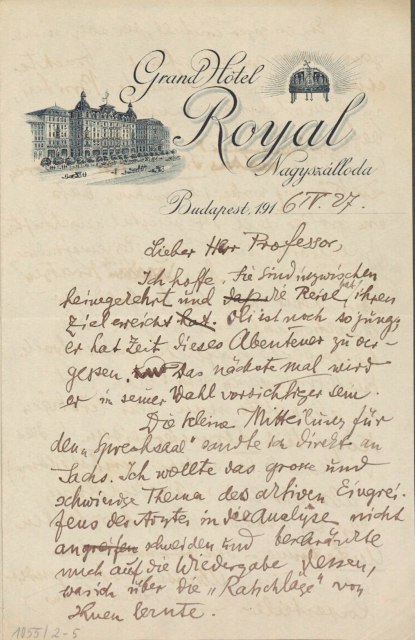 Grand Hôtel
Royal
Nagyszálloda
Budapest, 191 6 IV. 27.
Lieber Herr Professor,
Ich hoffe, Sie sind inzwischen
heimgekehrt und daß die Reise hat ihren
Ziel erreicht hat. ist noch so jung,
er hat Zeit, dieses Abenteuer zu ver-
gessen. Das nächste mal wird
er in seiner Wahl vorsichtiger sein.
Die kleine Mitteilung für
den „Sprechsaal" sandte ich direkt an
Sachs. Ich wollte das grosse und
schwierige Thema des aktiven Eingrei-
fens des Arztes in die Analyse nicht
anschneiden und beschränkte
mich auf die Wiedergabe dessen,
was ich über die „Ratschläge" von
Ihnen lernte.
1055/2-5